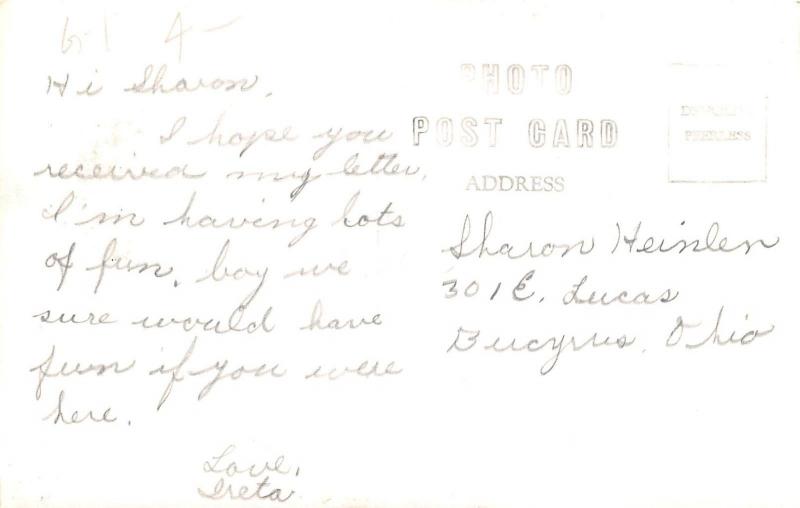 Hi Sharon,
I hope you
received my letter.
I'm having lots
of fun, boy we
sure would have
fun if you were
here.
Love,
Ireta
PHOTO
POST CARD
ADDRESS
PEERLESS
Sharon Heinlen
301 E. Lucas
Bucyrus, Ohio